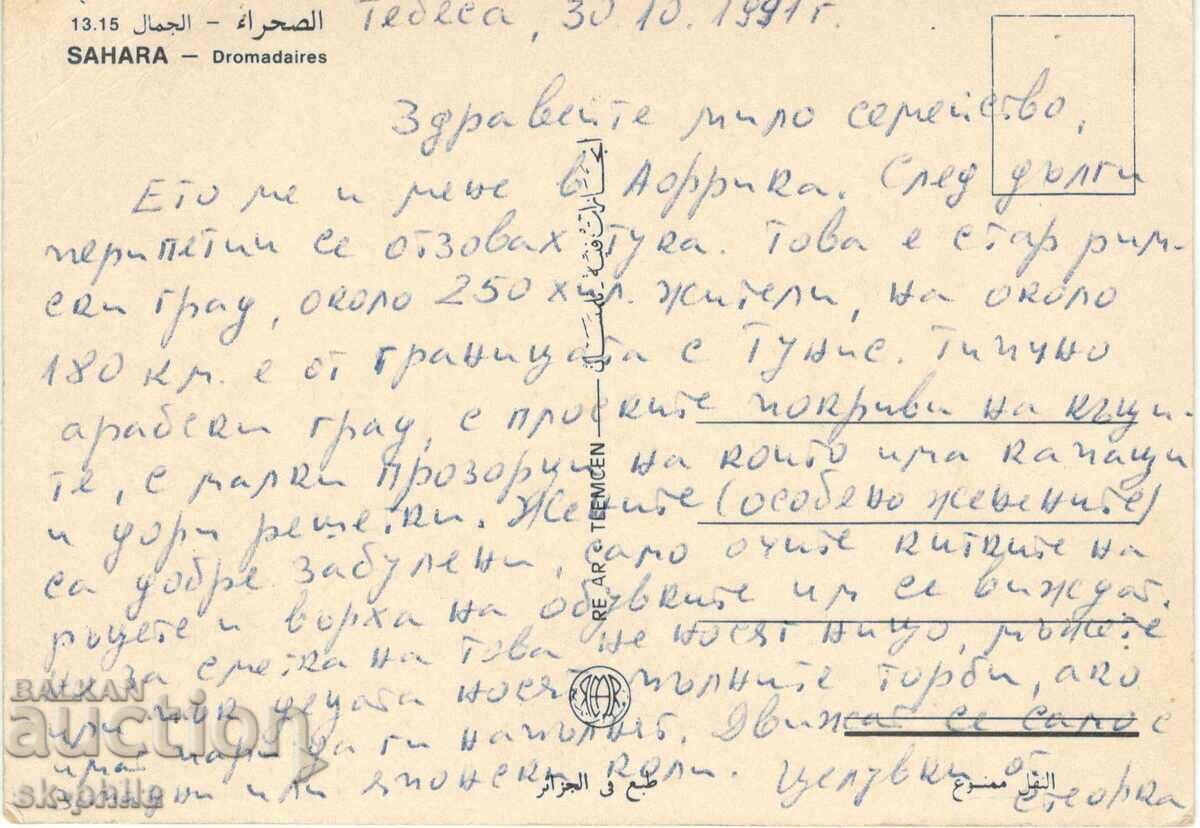 13.15 الصحراء – الجمال
SAHARA — Dromadaires
Тебеса, 30.10.1991 г.
Здравейте мило семейство,
Ето ме и мене в Африка. След дълги
перипетии се отзовах тука. Това е стар рим-
ски град, около 250 хил. жители, на около
180 км. е от границата с Тунис. Типично
арабски град, с плоските покриви на къщи-
те, с малки прозорци на които има капаци
и дори решетки. Жените (особено женените)
са добре забулени, само очите китките на
ръцете и върха на обувките им се виждат.
но за сметка на това не носят нищо, мъжете
или пък децата носят пълните торби, ако
има пари да ги напълнят. Движат се само с
или японски коли. Целувки от
RE AR C TLEMCEN
طبع في الجزائر
النقل ممنوع
BALKAN
auction
sk-philg